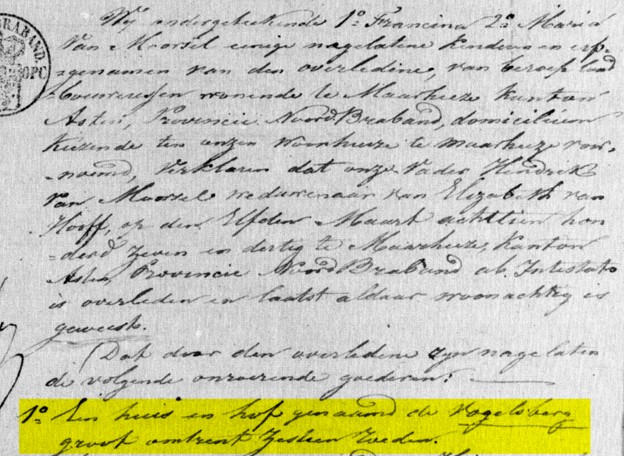 BRABAND.
OPC
Wij ondergeteekende 1º Francina 2º Maria
van Moorsel eenige nagelatene kinderen en erf-
=genamen van den overledene, van beroep land
=bouweressen wonende te Maarheeze Kanton
Asten, Provincie NoordBraband, domicilium
kiezende ten onzen woonhuize te Maarheeze voor-
=noemd, verklaren dat onze Vader Hendrik
van Moorsel weduwenaar van Elizabeth van
Hooff, op den Elfden Maart achttien hon
=derd zeven en dertig te Maarheeze, Kanton
Asten, Provincie NoordBraband ab Intestato
is overleden en laatst aldaar woonachtig is
geweest.
Dat door den overledene zyn nagelaten
de volgende onroerende goederen:
1º Een huis en hof genaamd de Vogelsberg
groot omtrent zestien Roeden.